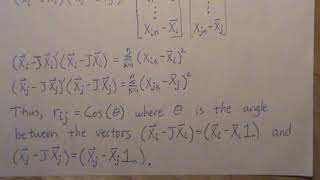 [x_in - X̄_i] [x_jn - X̄_j]
(X⃗_i - J̄X⃗_i)'(X⃗_i - J̄X⃗_i) = Σ_{k=1}^{n} (x_ik - X̄_i)²
(X⃗_j - J̄X⃗_j)'(X⃗_j - J̄X⃗_j) = Σ_{k=1}^{n} (x_jk - X̄_j)²
Thus, r_ij = Cos(θ) where θ is the angle
between the vectors (X⃗_i - J̄X⃗_i) = (X⃗_i - X̄_i 1_n) and
(X⃗_j - J̄X⃗_j) = (X⃗_j - X̄_j 1_n).